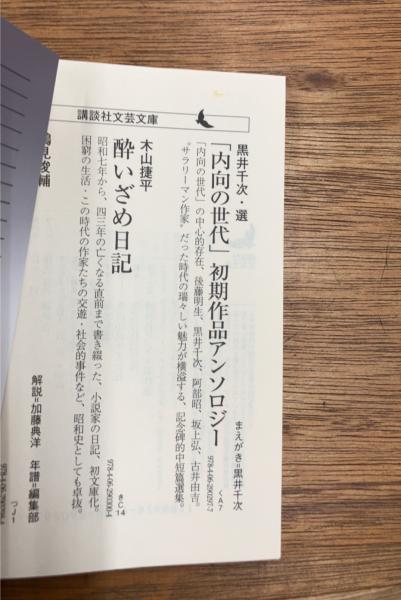 講談社文芸文庫
黒井千次・選
「内向の世代」初期作品アンソロジー
まえがき=黒井千次
「内向の世代」の中心的存在、後藤明生、黒井千次、阿部昭、坂上弘、古井由吉。
“サラリーマン作家”だった時代の瑞々しい魅力が横溢する、記念碑的中短篇選集。
くA7
木山捷平
酔いざめ日記
昭和七年から、四三年の亡くなる直前まで書き綴った、小説家の日記、初文庫化。
困窮の生活・この時代の作家たちの交遊・社会的事件など、昭和史としても卓抜。
きC14
見俊輔
解説=加藤典洋 年譜=編集部
つJ1